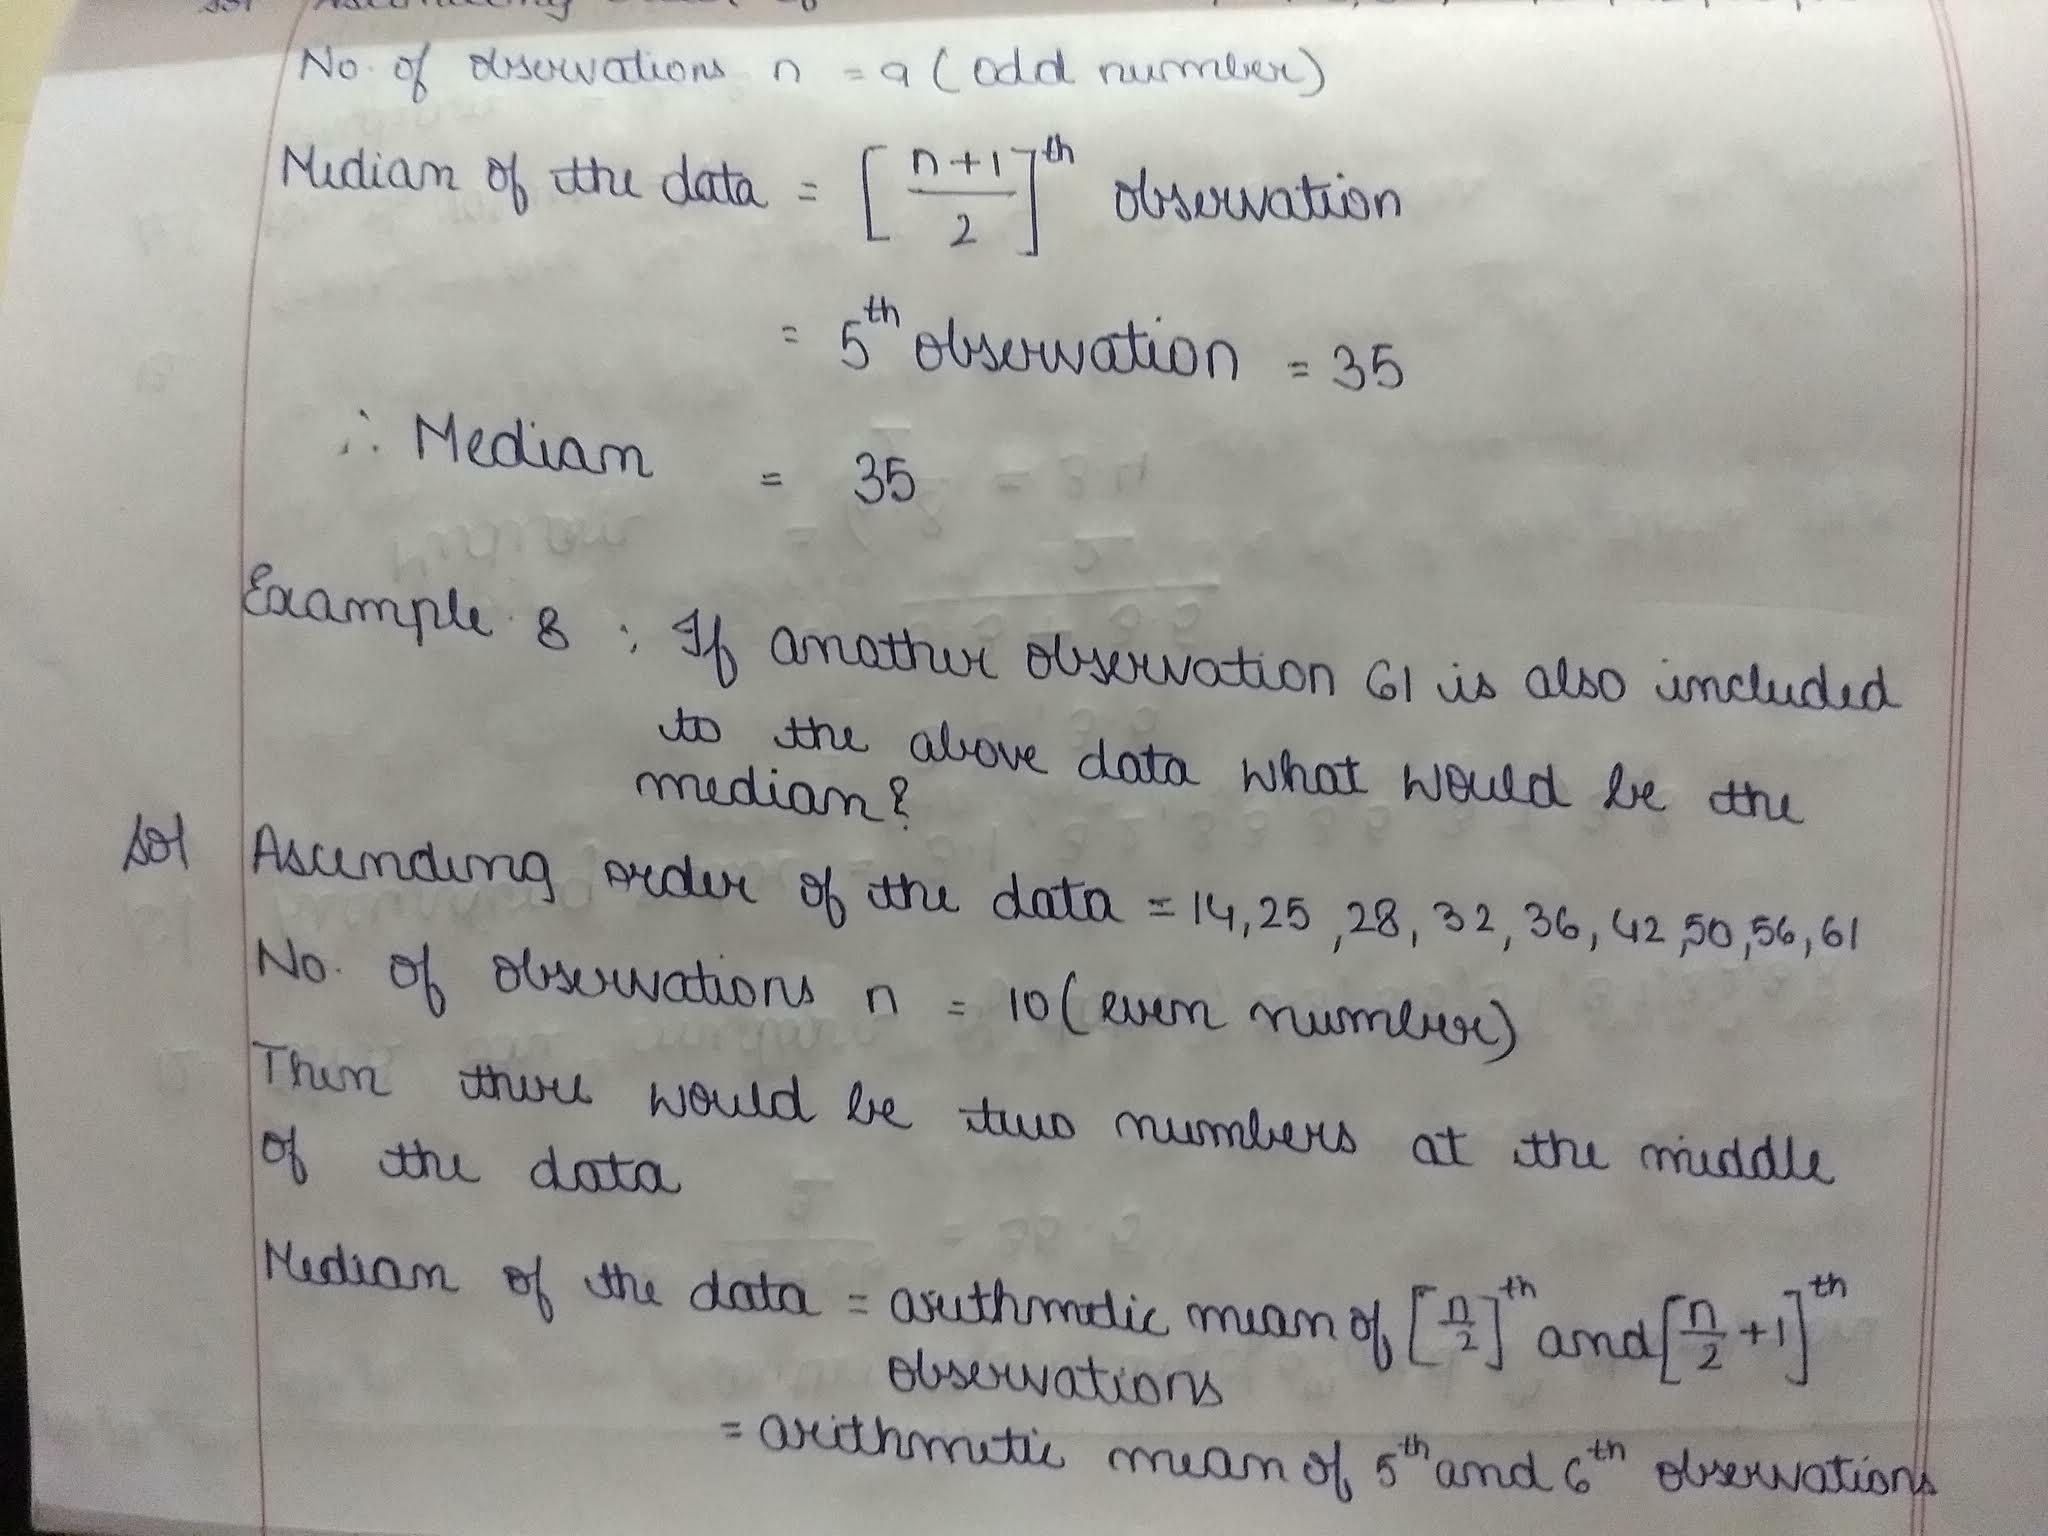 No. of observations n = 9 (odd number)
Median of the data = [n+1/2]th observation
= 5th observation = 35
∴ Median = 35
Example 8 : If another observation 61 is also included
to the above data what would be the
median?
Sol Ascending order of the data = 14, 25, 28, 32, 36, 42, 50, 56, 61
No. of observations n = 10 (even number)
Then there would be two numbers at the middle
of the data
Median of the data = arithmetic mean of [n/2]th and [n/2 + 1]th
observations
= arithmetic mean of 5th and 6th observations